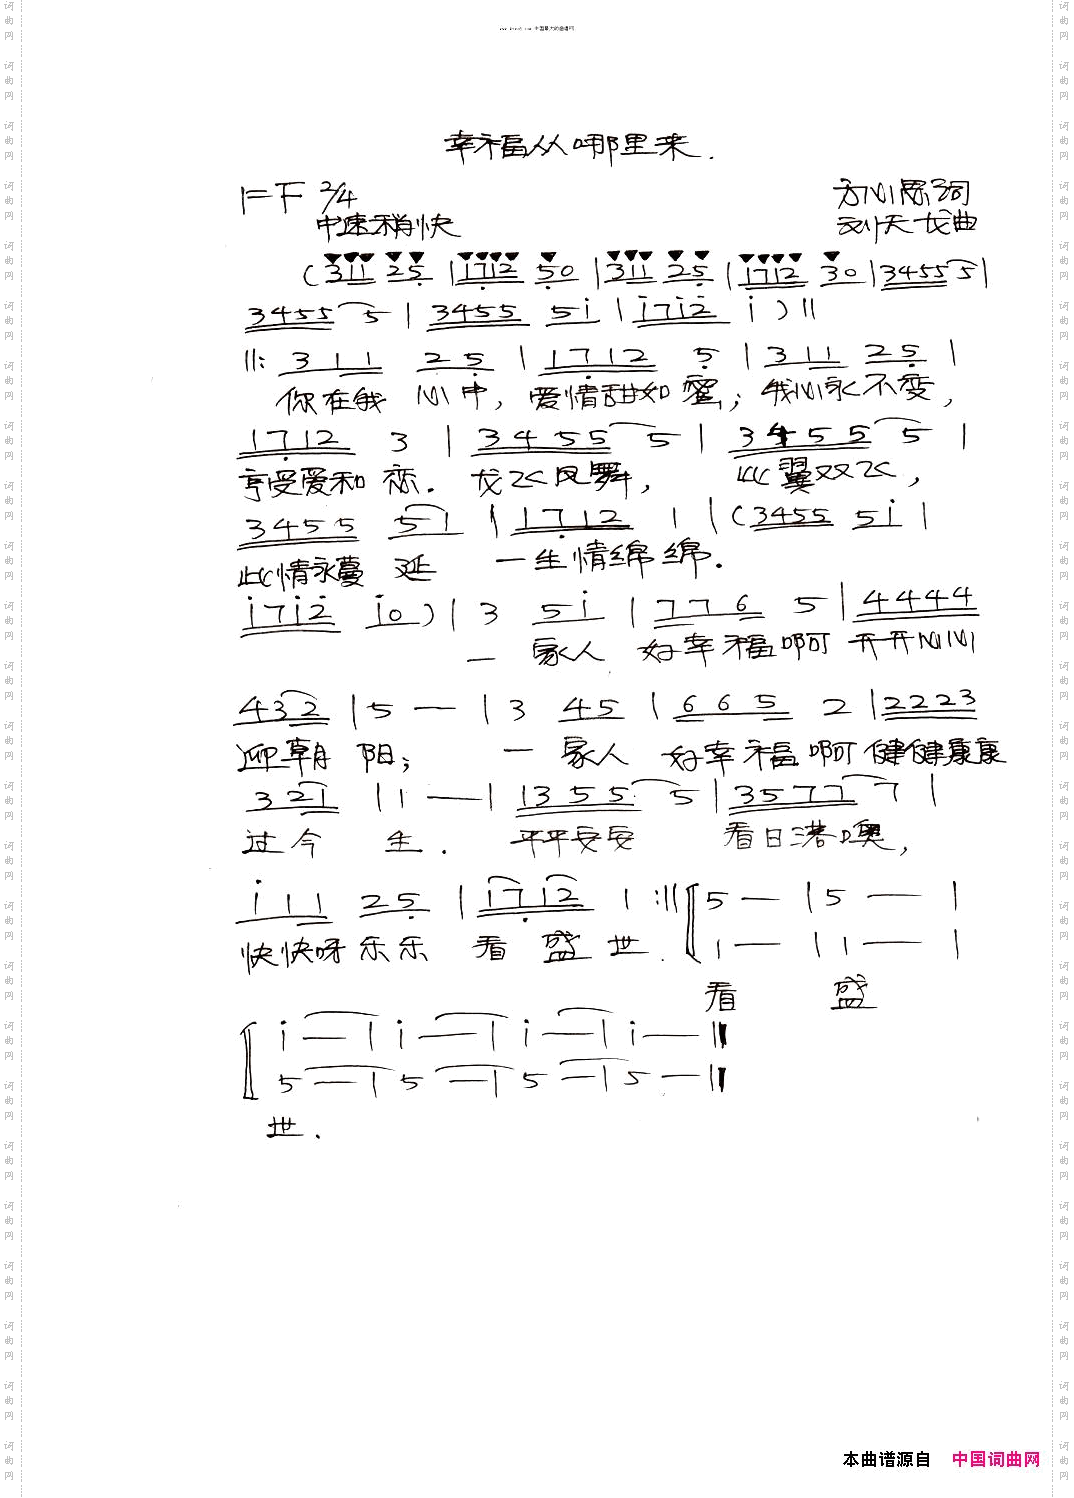 幸福从哪里来.
1=F 2/4
方心愿词
中速稍快
刘天龙曲
(311 25 |1712 50 |311 25 |1712 30 |3455 5|
3455 5 | 3455 5i | i7i2 i ) ||
||: 311 25 | 1712 5 | 311 25 |
你在我 心中, 爱情甜如蜜; 我心永不变,
1712 3 | 3455 5 | 3455 5 |
享受爱和恋. 龙飞凤舞, 比翼双飞,
3455 51 | 1712 1 | (3455 5i |
此情永蔓延 一生情绵绵.
i7i2 i0) | 3 5i | 776 5 | 4444
一 家人 好幸福啊 开开心心
432 | 5 — | 3 45 | 665 2 | 2223
迎朝阳; 一 家人 好幸福啊 健健康康
321 | 1 — | 1355 5 | 3577 7 |
过今生. 平平安安 看日港噢,
i11 25 | i712 1 :|| 5 — | 5 — |
1 — | 1 — |
快快呀乐乐 看盛世.
看 盛
i — | i — | i — | i — ||
5 — | 5 — | 5 — | 5 — ||
世.
本曲谱源自 中国词曲网